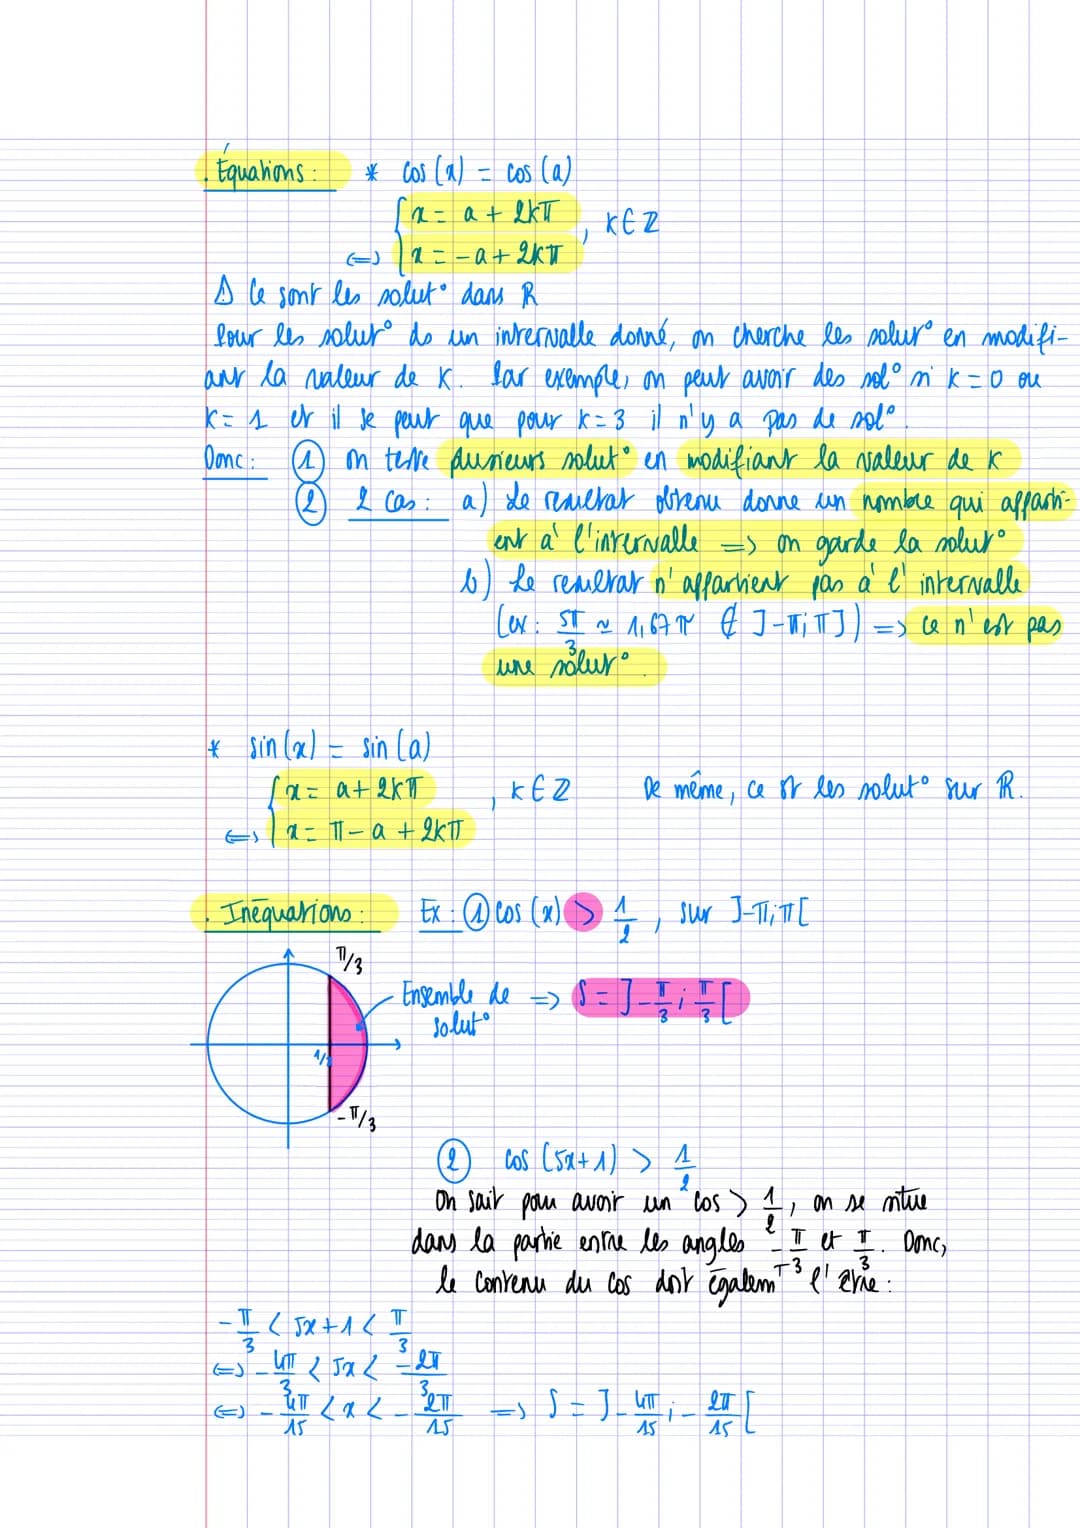 . Équations : * cos (x) = cos (a)
x = a + 2kπ
, k ∈ ℤ
<=> x = - a + 2kπ
⚠ Ce sont les solut° dans ℝ
Pour les solut° ds un intervalle donné, on cherche les solut° en modifi-
ant la valeur de k. Par exemple, on peut avoir des sol° si k = 0 ou
k = 1 et il se peut que pour k = 3 il n'y a pas de sol°.
Donc : ① on teste plusieurs solut° en modifiant la valeur de k
② 2 cas : a) Le resultat obtenu donne un nombre qui apparti-
ent à l'intervalle => on garde la solut°
b) Le resultat n'appartient pas à l'intervalle
(ex : 5π/3 ≈ 1,67 π ∉ ]-π; π]) => ce n'est pas
une solut°.
* sin (x) = sin (a)
x = a + 2kπ
, k ∈ ℤ De même, ce st les solut° sur ℝ.
<=> x = π - a + 2kπ
. Inéquations : Ex : ① cos (x) > 1/2, sur ]-π; π[
π/3
Ensemble de => S = ]-π/3 ; π/3[
solut°
1/2
-π/3
② cos (5x + 1) > 1/2
On sait pour avoir un cos > 1/2, on se situe
dans la partie entre les angles -π/3 et π/3. Donc,
le contenu du cos doit égalemt l'être :
-π/3 < 5x + 1 < π/3
<=> -4π/3 < 5x < -2π/3
<=> -4π/15 < x < -2π/15 => S = ]-4π/15 ; -2π/15[